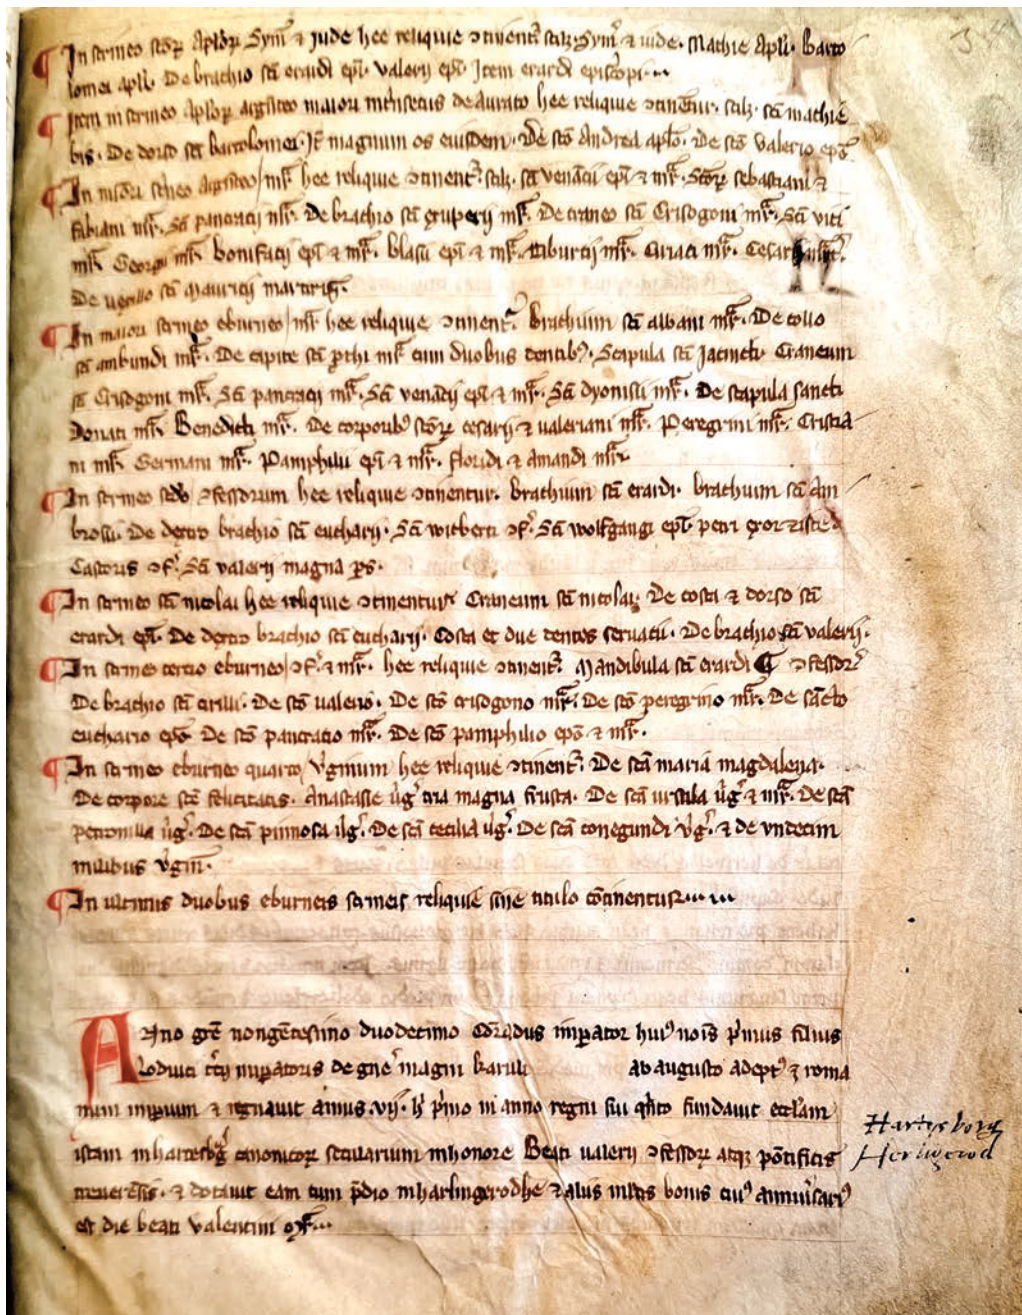 ¶ In scrineo sctōꝝ Aplōꝝ Sym̄ ⁊ iude hee reliquie ↄtinent᷑ scilꝫ Sym̄ ⁊ iude · Mathie Apłi · Barto
lomei apłi · De brachio sc̄i erardi ep̄i · valerij ep̄i Item erardi episcopi ·
¶ Item in scrineo Aplōꝝ argēteo maiori de aurato hee reliquie ↄtinēt᷑ · scilꝫ · sc̄i mathie
De dorso sc̄i bartolomei · Jt̄ magnum os eiusdem · De sc̄o Andrea aplō · De sc̄o valerio ep̄o
¶ In scrineo argēteo / mr̄ hee reliquie ↄtinent᷑ · scilꝫ · sc̄i venācij ep̄i ⁊ mr̄ · Sc̄oꝝ sebastiani ⁊
fabiani mr̄ · Sc̄i pancracij mr̄ · De brachio sc̄i mr̄ · De craneo sc̄i Crisogoni mr̄ · Sc̄i viti
mr̄ Georgij mr̄ bonifacij ep̄i ⁊ mr̄ · blasii ep̄i ⁊ mr̄ · tiburcij mr̄ · Ciriaci mr̄ · Cesarii
De sc̄i Mauricij martiris ·
¶ In maiori scrineo eburneo / mr̄ hee reliquie ↄtinent᷑ · Brachium sc̄i albani mr̄ · De collo
sc̄i mr̄ · De capite sc̄i ꝓthi mr̄ cum duobus dentibꝰ · Scapula sc̄i Jacincti · Craneum
sc̄i Crisogoni mr̄ · Sc̄i pancracij mr̄ · Sc̄i venācij ep̄i ⁊ mr̄ · Sc̄i dyonisii mr̄ · De scapula sancti
Donati mr̄ Benedicti mr̄ · De corporibꝰ sc̄oꝝ cesarij ⁊ valeriani mr̄ · Peregrini mr̄ · Cristia
ni mr̄ Germani mr̄ · Pamphilii ep̄i ⁊ mr̄ · floridi ⁊ amandi mr̄
¶ In scrineo ↄfessorum hee reliquie ↄtinentur · brachium sc̄i erardi · brachium sc̄i Am
brosii · De dextro brachio sc̄i eucharij · Sc̄i witberti ↄf᷑ · Sc̄i wolfgangi ep̄i · petri
Castoris ↄf᷑ · Sc̄i valerij magna ꝑs ·
¶ In scrineo sc̄i nicolai hee reliquie ↄtinentur Craneum sc̄i nicolai · De costa ⁊ dorso sc̄i
erardi ep̄i · De dextro brachio sc̄i eucharij · Costa et due dentes seruacii · De brachio sc̄i valerij ·
¶ In scrineo tercio eburneo / ↄf᷑ ⁊ mr̄ · hee reliquie ↄtinent᷑ Mandibula sc̄i erardi ¶ ↄfessoꝝ
De brachio sc̄i cirilli · De sc̄o valerio · De sc̄o crisogono mr̄ · De sc̄o peregrino mr̄ · De sācto
euchario ep̄o De sc̄o pancracio mr̄ · De sc̄o pamphilio ep̄o ⁊ mr̄ ·
¶ In scrineo eburneo quarto / v̓ginum hee reliquie ↄtinent᷑ · De sc̄a maria magdalena ·
De corpore sc̄e felicitatis · Anastasie v̓g᷑ tria magna frusta · De sc̄a vrsula v̓g᷑ ⁊ mr̄ · De sc̄a
petronilla v̓g᷑ · De sc̄a pinnosa v̓g᷑ · De sc̄a cecilia v̓g᷑ · De sc̄a conegundi v̓g᷑ · ⁊ de vndecim
milibus v̓gin̄ ·
¶ In vltimis duobus eburneis scrineis reliquie sine titulo cōtinentur ·
Anno grē nongētesimo duodecimo Cōradus imꝑator huiꝰ nōis p̓mus filius
Lodwici t̓cij imꝑatoris de gn̄e magni karuli ab augusto adeptꝰ ꝫ roma
num imꝑium ⁊ regnauit annis · vij · h̓ p̓mo in anno regni sui q̓nto fundauit eccl̄am
istam in hartesbg̓ canonicoꝝ secularium in honore Beati valerij ↄfessoꝝ atqꝫ pōtificis
treuerēsis · ⁊ dotauit eam cum p̄dio in harlingerodhe ⁊ aliis ml̓tis bonis cuiꝰ anniu̓sariꝰ
est die beati valentini mr̄
Hartysborg
Herligerod